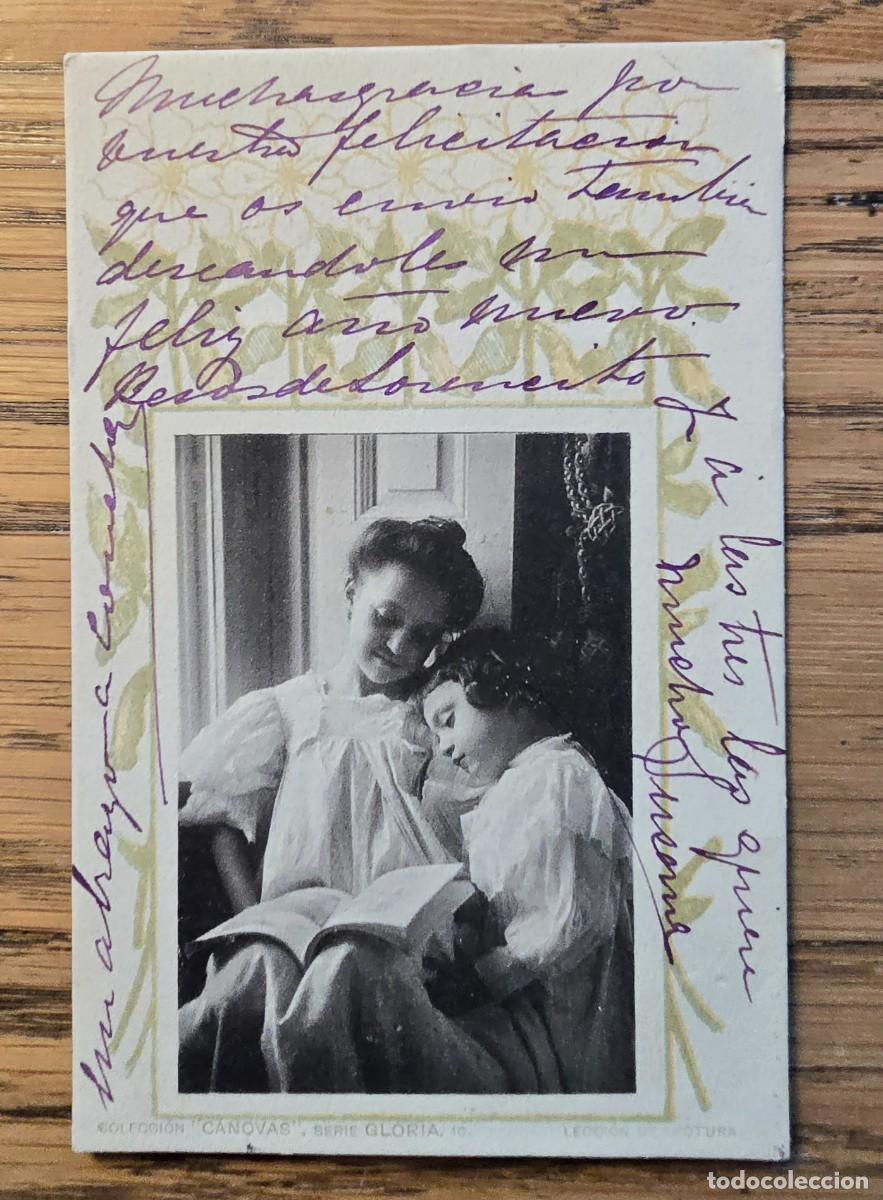 Muchas gracias por
vuestra felicitacion
que os envio tambien
deseandoles un
feliz año nuevo.
Besos de Lorencito
y a las tres las quiere
mucho Susana
un abrazo a Concha
COLECCIÓN "CÁNOVAS", SERIE GLORIA. 10.
LECCIÓN DE LECTURA
todocoleccion